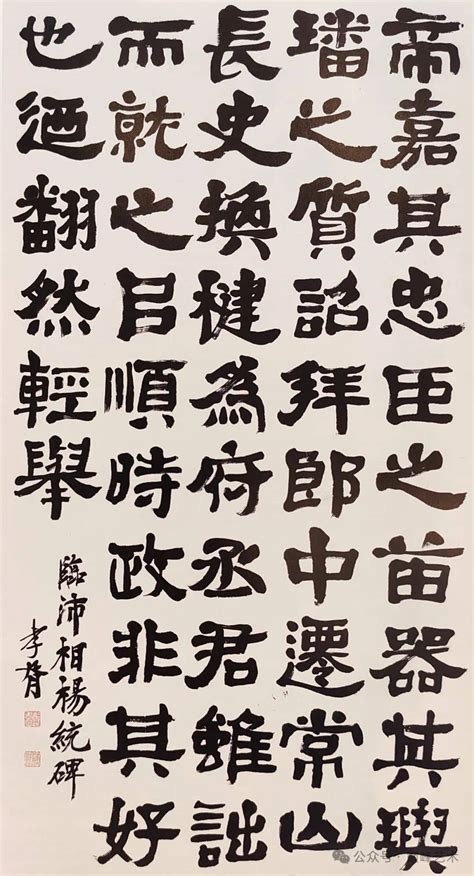 帝嘉其忠臣之苗器其璵
璠之質詔拜郎中遷常山
長史換犍為府丞君雖詘
而就之㠯順時政非其好
也迺翻然輕舉
臨沛相楊統碑
孝胥
公众号 · 艺术